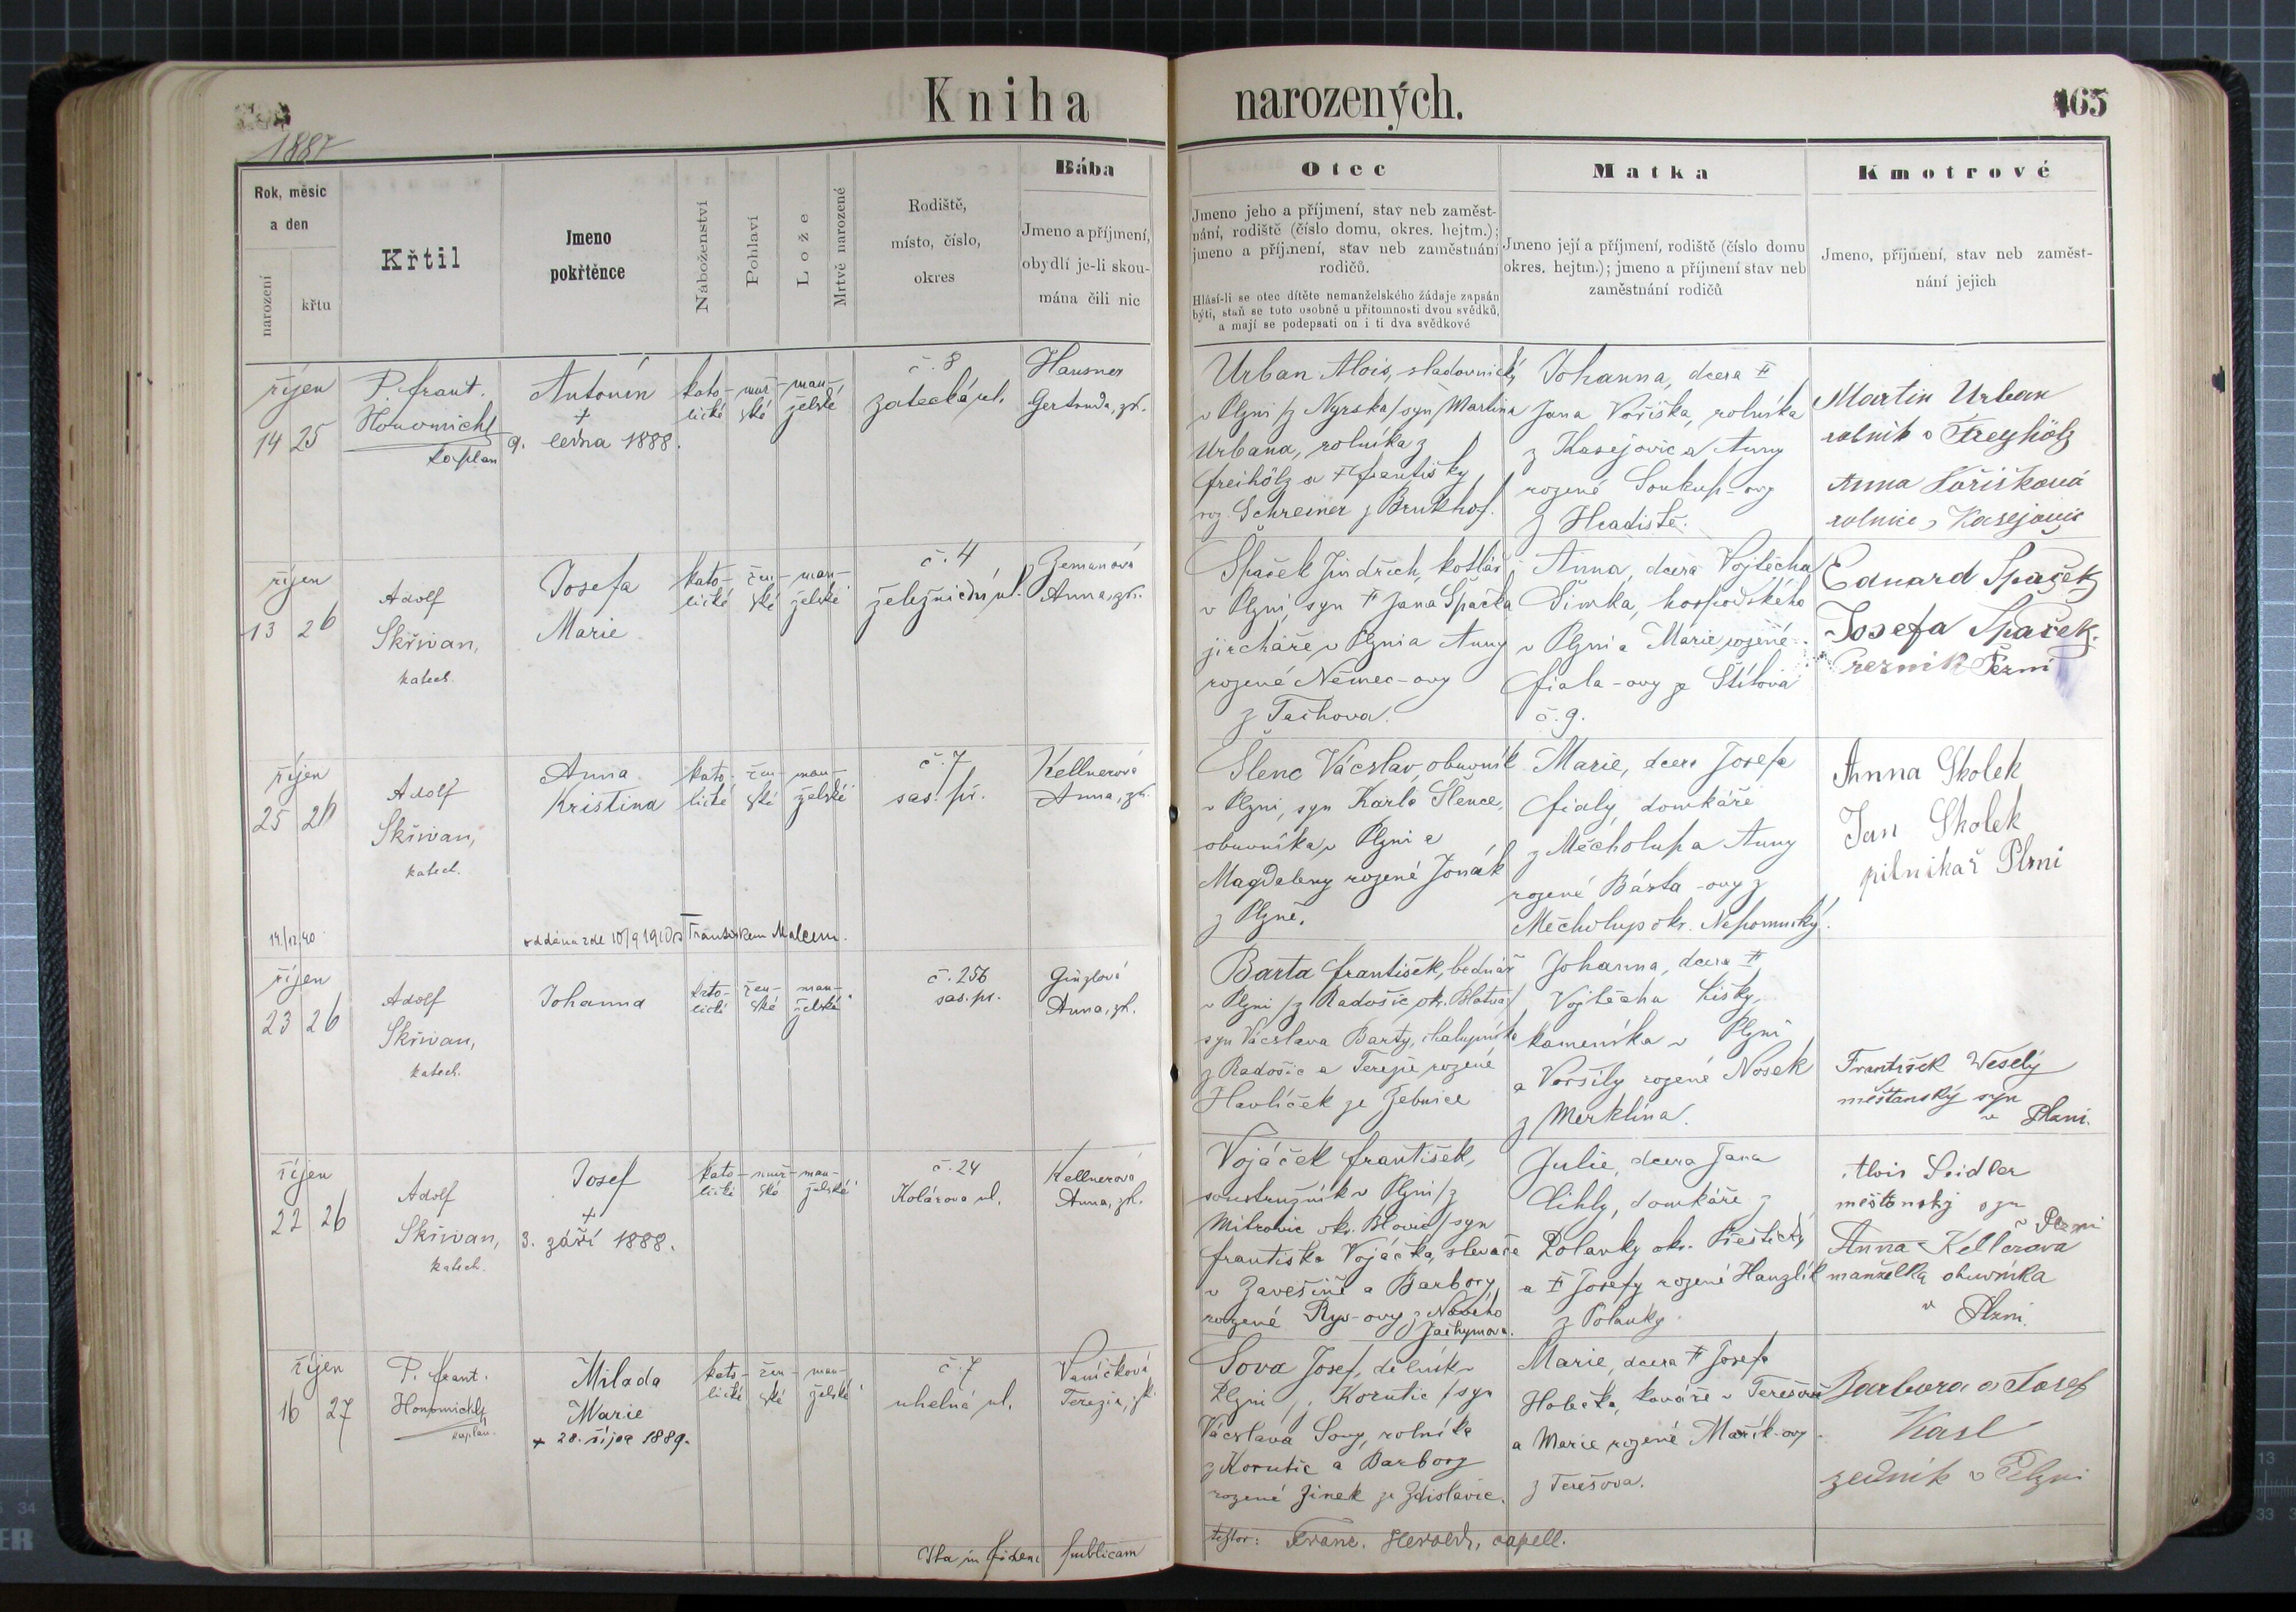 Kniha
narozených.
465
1887
Rok, měsíc
a den
narození
křtu
Křtil
Jmeno
pokřtěnce
Náboženství
Pohlaví
Lože
Mrtvě narozené
Rodiště,
místo, číslo,
okres
Bába
Jmeno a příjmení,
obydlí je-li skou-
mána čili nic
Otec
Jmeno jeho a příjmení, stav neb zaměst-
nání, rodiště (číslo domu, okres. hejtm.);
jmeno a příjmení, stav neb zaměstnání
rodičů.
Hlásí-li se otec dítěte nemanželského žádaje zapsán
býti, staň se toto osobně u přítomnosti dvou svědků,
a mají se podepsati on i ti dva svědkové
Matka
Jmeno její a příjmení, rodiště (číslo domu
okres. hejtm.); jmeno a příjmení stav neb
zaměstnání rodičů
Kmotrové
Jmeno, příjmení, stav neb zaměst-
nání jejich
říjen
14 25
P. frant.
Honomichl
kaplan
Antonín
+
9. ledna 1888.
kato-
lické
muž-
ské
man-
želské
č. 8
zatecká ul.
Hausner
Gertruda, zk.
Urban Alois, sladovnický
v Plzni /z Nyrska/ syn Martina
Urbana, rolníka z
freihölz a † františky
roz. Schreiner z Brukhof.
Johanna, dcera †
Jana Voříška, rolníka
z Kasejovic a Anny
rozené Soukup-ovy
z Hradiště.
Martin Urban
rolník v Freyhölz
Anna Voříšková
rolnice v Kasejovic
říjen
13 26
Adolf
Skřivan,
katech.
Josefa
Marie
kato-
lické
žen-
ské
man-
želské
č. 4
železniční ul.
Zemanová
Anna, zk.
Špaček Jindřich, kotlář
v Plzni syn † Jana Špačka
jircháře v Plzni a Anny
rozené Němec-ovy
z Tachova.
Anna, dcera Vojtěcha
Šimka, hospodského
v Plzni a Marie rozené
fiala-ovy ze Štítova
č. 9.
Eduard Špaček
Josefa Špaček.
řezník Plzni
říjen
25 26
Adolf
Skřivan,
katech.
Anna
Kristina
kato-
lické
žen-
ské
man-
želské
č. 7
sas. př.
Kellnerová
Anna, zk.
Šlenc Václav, obuvník
v Plzni, syn Karla Šlence,
obuvníka v Plzni a
Magdaleny rozené Jonák
z Plzně.
Marie, dcera Josefa
fialy, domkáře
z Měcholup a Anny
rozené Bárta-ovy z
Měcholup okr. Nepomucký.
Anna Skolek
Jan Skolek
pilnikař Plzni
14./12.40
oddána zde 10/9 1910 s Františkem Malcem.
říjen
23 26
Adolf
Skřivan,
katech.
Johanna
kato-
lické
žen-
ské
man-
želské
č. 256
sas. př.
Ginzlová
Anna, zk.
Barta frantisek, bednář
v Plzni /z Radošic okr. Blatná/
syn Václava Barty, chalupníka
z Radošic a Terezie rozené
Havlíček ze Zebnice
Johanna, dcera †
Vojtěcha Lišky,
kameníka v Plzni
a Voršily rozené Nosek
z Merklína.
František Weselý
měštanský syn
v Plzni.
říjen
22 26
Adolf
Skřivan,
katech.
Josef
+
3. září 1888.
kato-
lické
muž-
ské
man-
želské
č. 24
Kolárova ul.
Kellnerová
Anna, zk.
Vojáček František,
soustružník v Plzni /z
Mitrovic okr. Blovic/ syn
františka Vojáčka, slevače
v Zavešíně a Barbory,
rozené Rys-ovy z Nového
Jachymova.
Julie, dcera Jana
Cihly, domkáře z
Polanky okr. Přeštický
a † Josefy rozené Hanzlík
z Polanky
Alois Seidler
měštanský syn
v Plzni
Anna Kellerova
manželka obuwnika
v Plzni.
říjen
16 27
P. frant.
Honomichl
kaplan.
Milada
Marie
+ 20. října 1889.
kato-
lické
žen-
ské
man-
želské
č. 7
uhelná ul.
Vaníčková
Terezie, zk.
Sova Josef, dělník v
Plzni /z Korutic/ syn
Václava Sovy, rolníka
z Korutic a Barbory
rozené Jinek ze Zdislavic.
Marie, dcera † Josefa
Holečka, kováře v Terešově
a Marie rozené Mařík-ovy
z Terešova.
Barbora a Josef
Kasl
zedník v Plzni
Ita in fidem publicam
testor: Franc. Herold, capell.